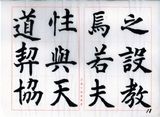 之設教
焉若夫
性與天
道契協